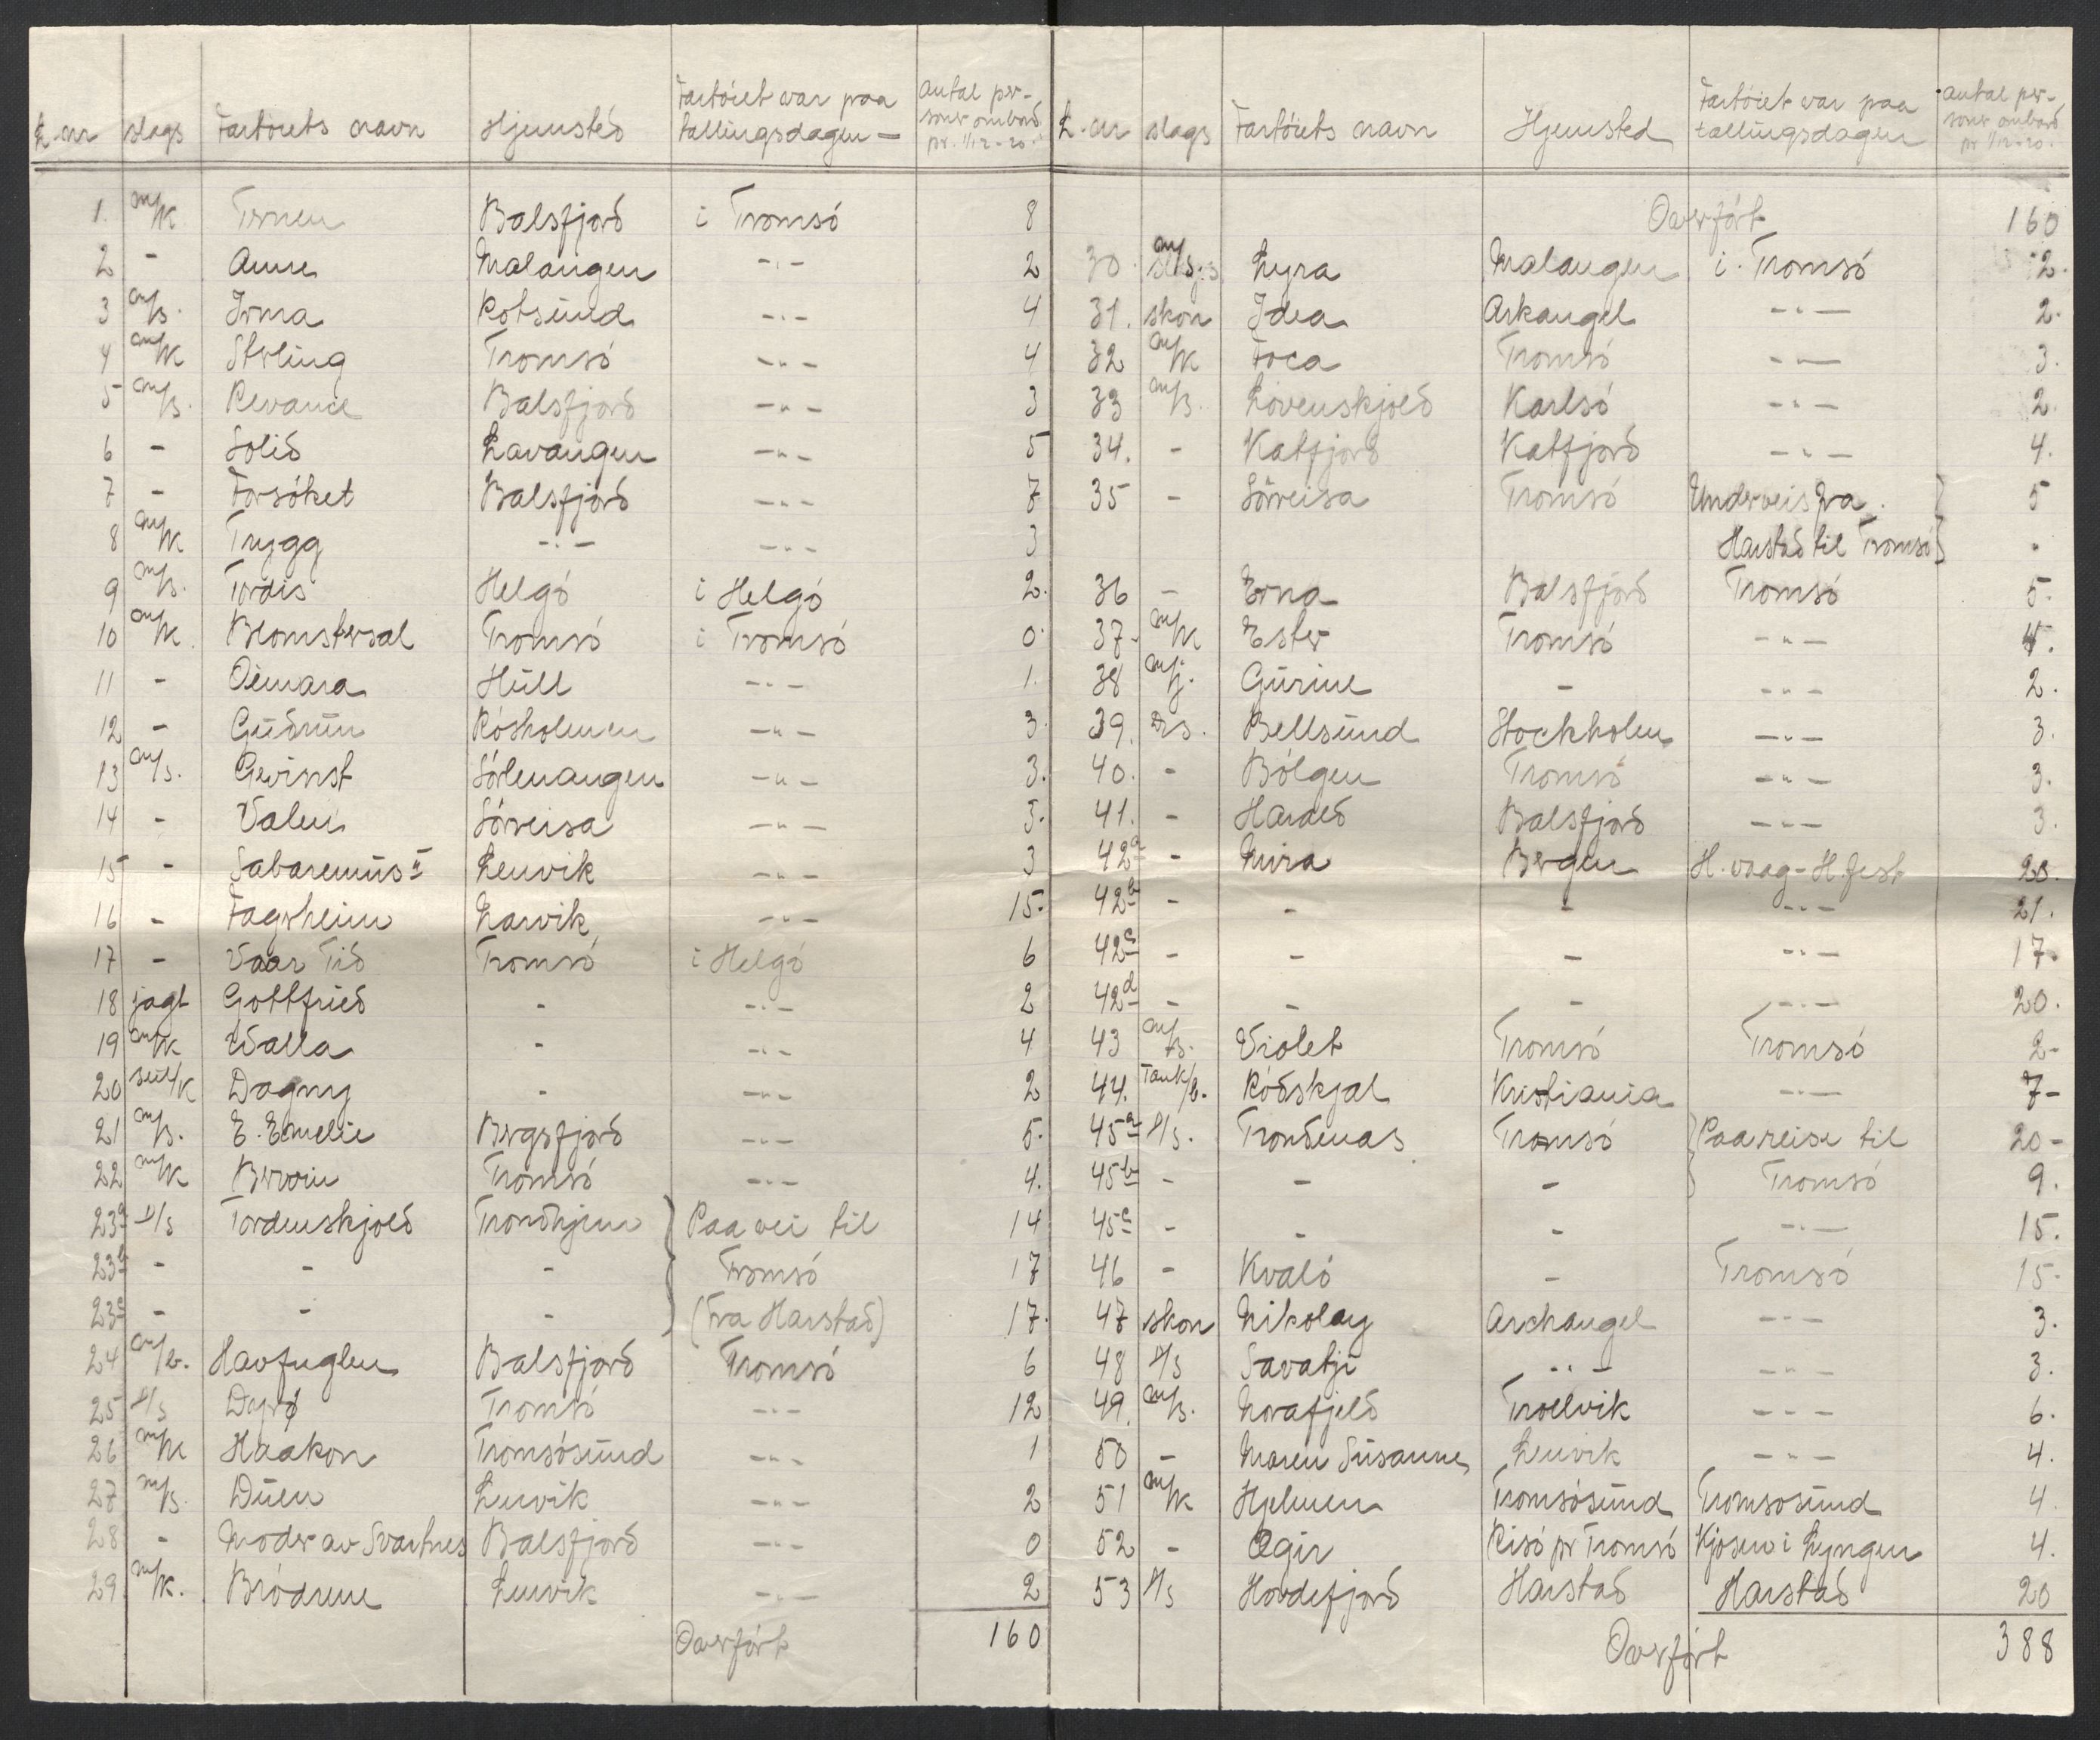 L.nr slags Fartöiets navn Hjemsted Fartöiet var paa tællingsdagen — Antal per- soner ombord pr. 1/12-20.
1. m/k Ternen Balsfjord i Tromsö 8
2 - Anne Malangen -"- 2
3 m/s. Irma Rotsund -"- 4
4 m/k Sterling Tromsö -"- 4
5 m/s. Revance Balsfjord -"- 3
6 - Solid Lavangen -"- 5
7 - Forsöket Balsfjord -"- 7
8 m/k Trygg -"- -"- 3
9 m/s. Tordis Helgö i Helgö 2.
10 m/k. Blomstersal Tromsö i Tromsö 0.
11 - Oimara Hull -"- 1.
12 - Gudrun Rösholmen -"- 3.
13 m/s. Gevinst Sörlenangen -"- 3.
14 - Valen Sörreisa -"- 3.
15 - Sabaremus II Lenvik -"- 3
16 - Fagerheim Larvik -"- 15.
17 - Vaar Tid Tromsö i Helgö 6
18 jagt Gottfried - -"- 2
19 m/k Walla - -"- 4
20 seil/k Dagny - -"- 2
21 m/s. E. Emelie Bergsfjord -"- 5.
22 m/k Brvoin Tromsö -"- 4.
23a d/s Tordenskjold Trondhjem Paa vei til 14
23b - - - Tromsö 17
23c - - - (fra Harstad) 17.
24 m/b. Havfuglen Balsfjord Tromsö 6
25 d/s Tromsö -"- 12
26 m/k Haakon Tromsösund -"- 1
27 m/s. Duen Lenvik -"- 2
28 - Moder av Svartnes Balsfjord -"- 0
29 m/k. Brödrene Lenvik -"- 2
Overfört 160
L.nr slags Fartöiets navn Hjemsted Fartöiet var paa tællingsdagen Antal per- soner ombord pr 1/12-20.
Overfört 160
30. m/s Lyra Malangen i Tromsö 2.
31. skon Idea Arkangel -"- 2.
32 m/k Foca Tromsö -"- 3.
33 m/s. Lövenskjold Karlsö -"- 2.
34. - Katfjord Katfjord -"- 4.
35 - Sörreisa Tromsö Underveis fra 5
Harstad til Tromsö
36 - Erna Balsfjord Tromsö 5.
37. m/k Ester Tromsö -"- 4.
38 m/j. Gurine - -"- 2.
39. Bellsund Stockholm -"- 3.
40. - Bölgen Tromsö -"- 3.
41. - Harald Balsfjord -"- 3.
42a - Mira Bergen H.vaag - H.fest 20.
42b - - - -"- 21.
42c - - - -"- 17.
42d - - - -"- 20.
43 m/s. Violet Tromsö Tromsö 2-
44. Tank/b. Rödskjal Kristiania -"- 7-
45a d/s. Trondenæs Tromsö Paa reise til 20-
45b - - - Tromsö 9.
45c - - - -"- 15.
46 - Kvalö - Tromsö 15-
47 skon Nikolay Archangel -"- 3.
48 d/s Savatji -"- -"- 3.
49. m/s. Norafjeld Trollvik -"- 6.
50 - Maren Susanne Lenvik -"- 4.
51 m/k Hjelmen Tromsösund Tromsosund 4.
52 - Ægir Risö pr Tromsö Kjosen i Lyngen 4.
53 d/s Hordefjord Harstad Harstad 20
Overfört 388